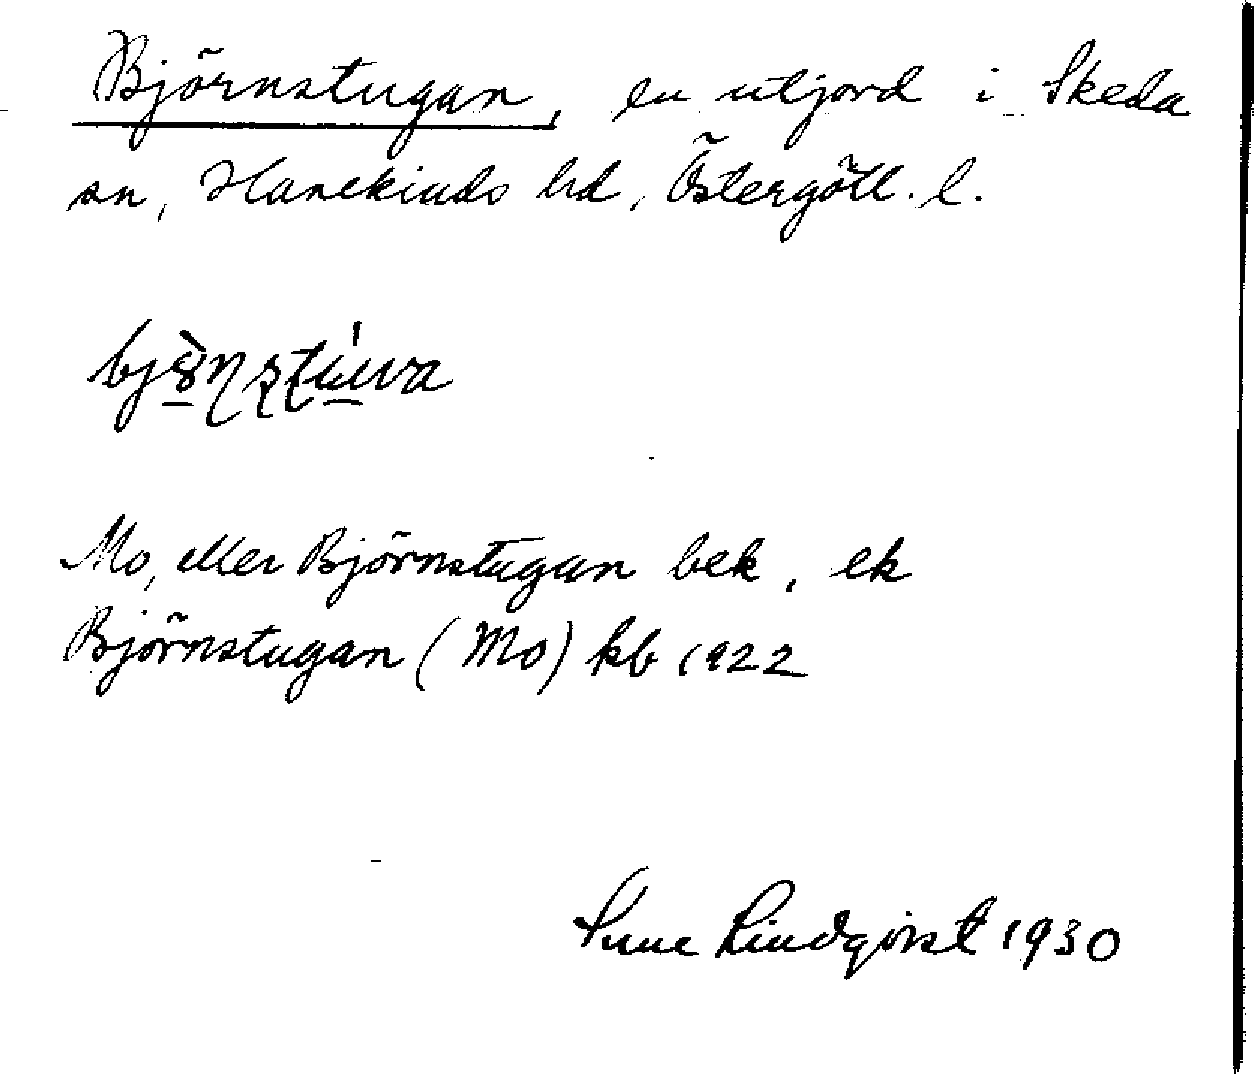 Björnstugan, en utjord i Skeda
sn, Hanekinds hd, Östergötl. l.
Mo, eller Björnstugan bek, ek
Björnstugan (Mo) kb 1922
Sune Lindqvist 1930